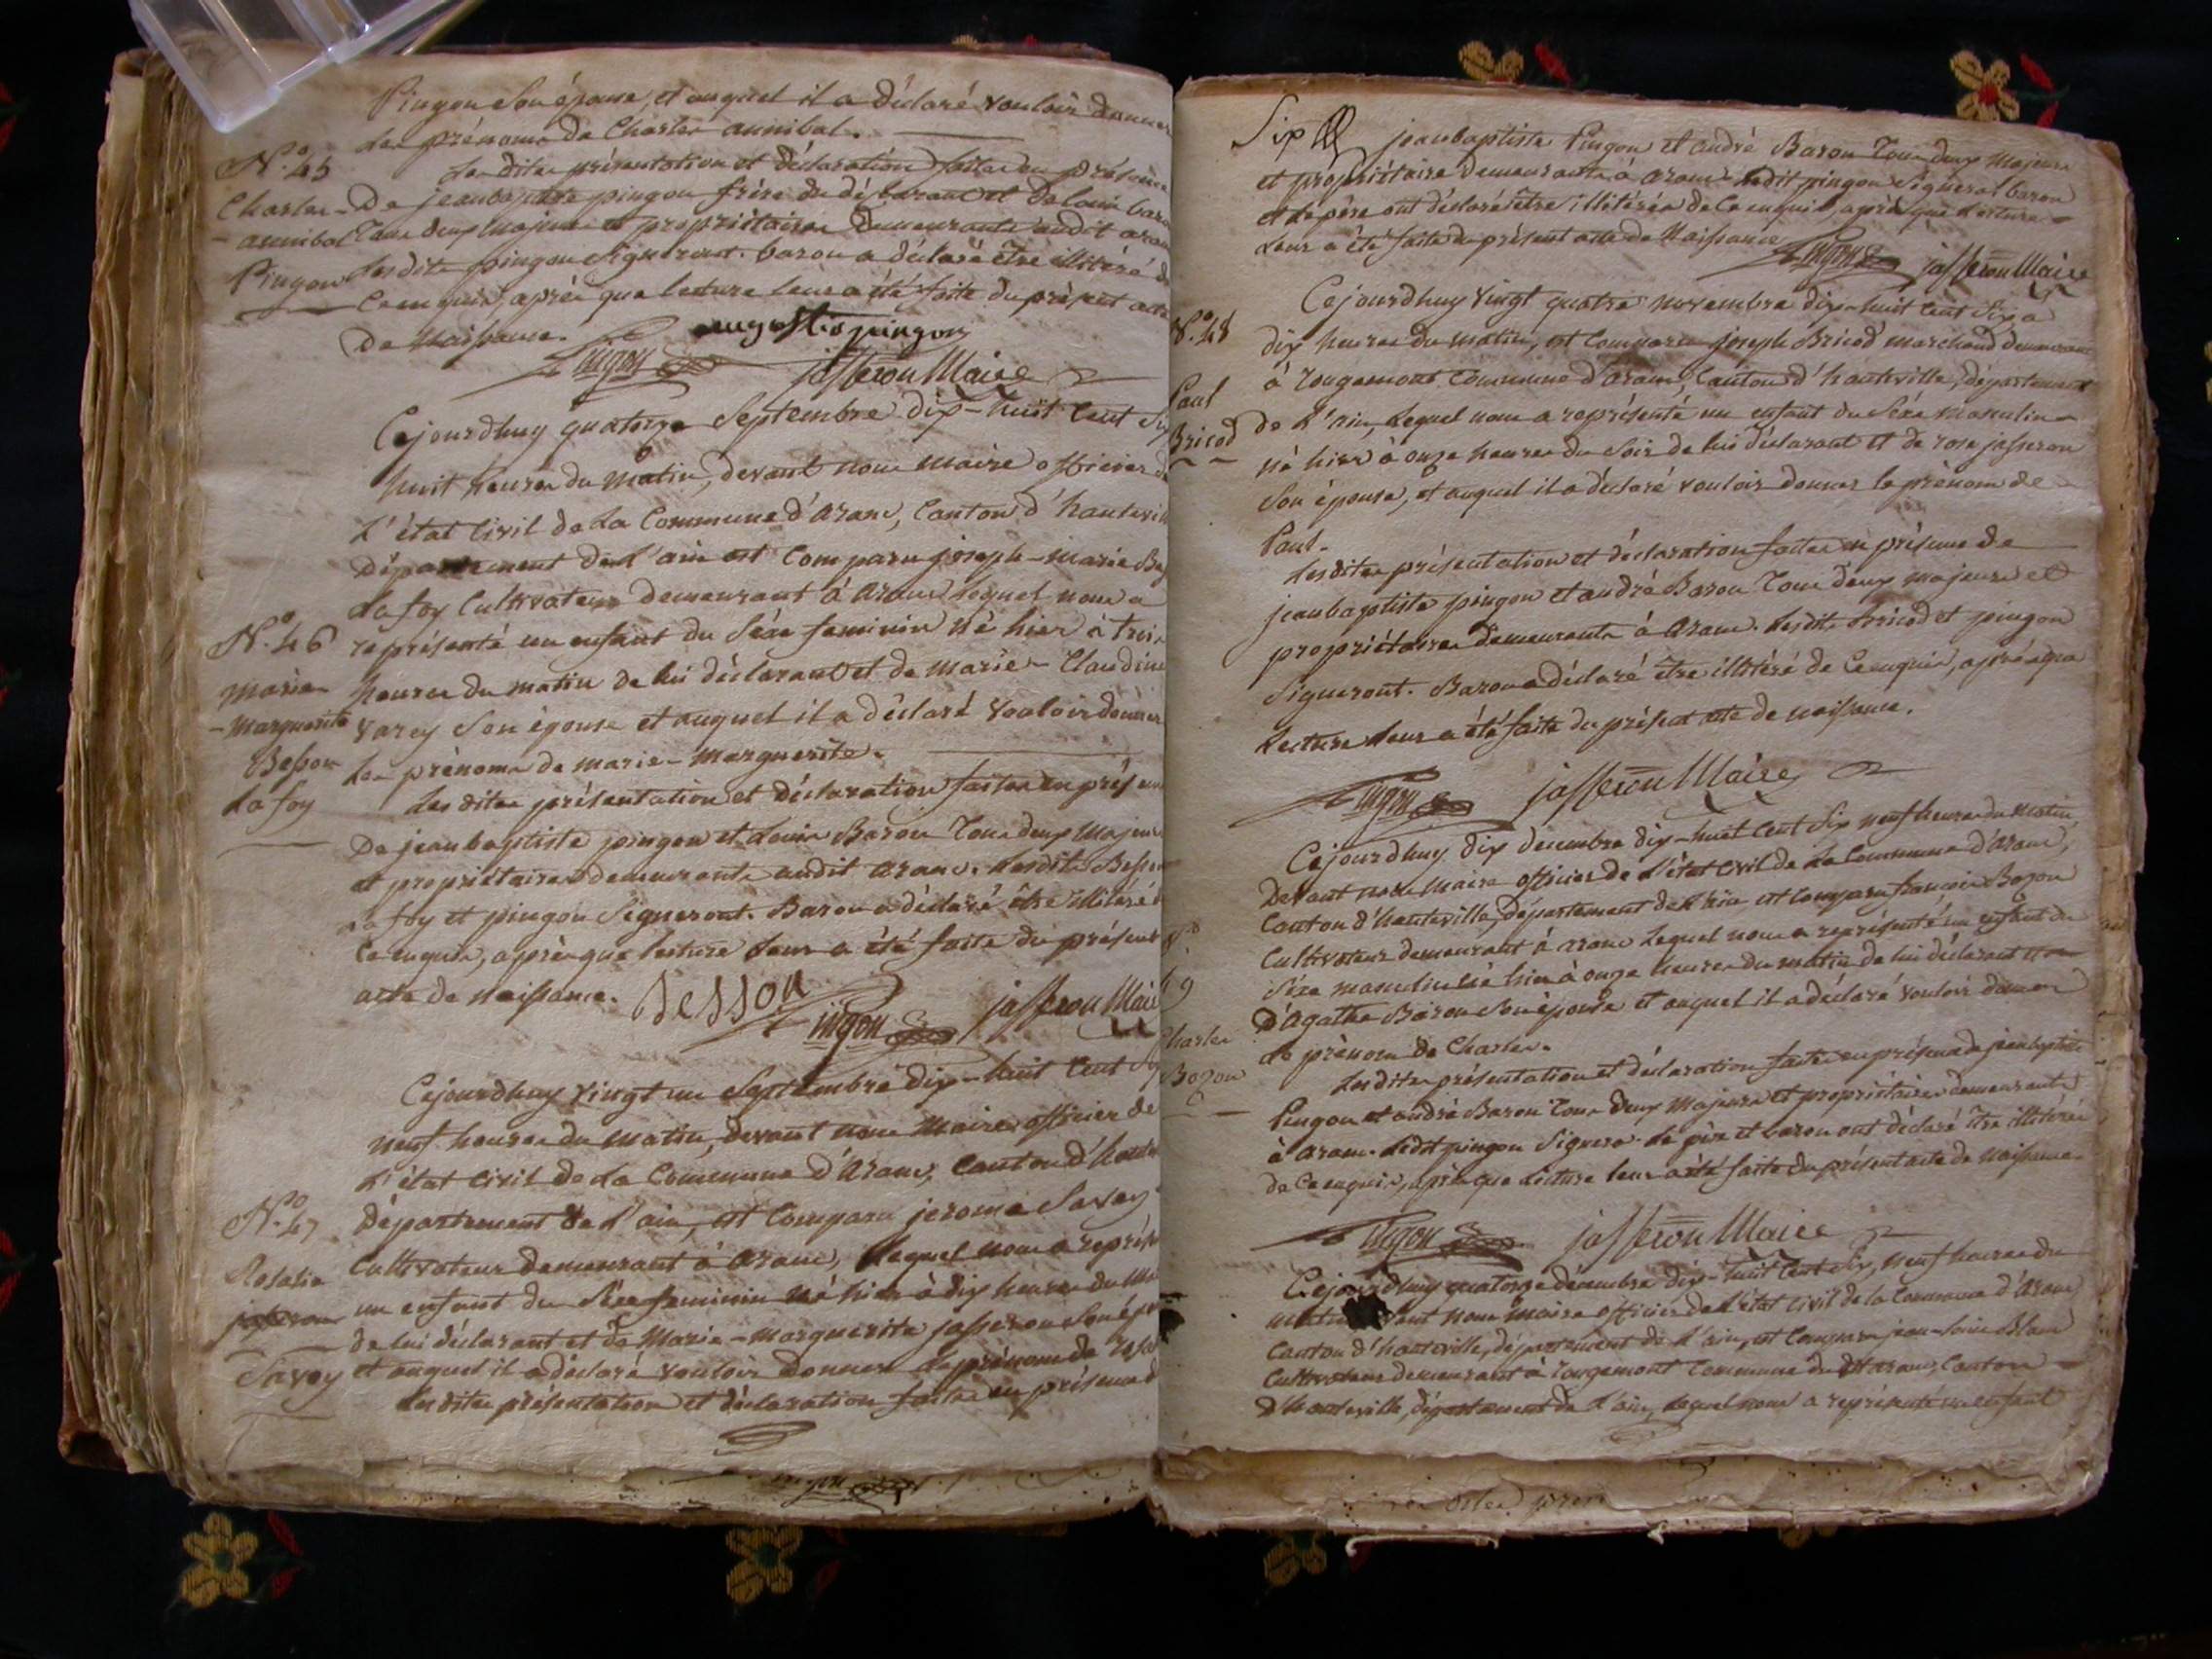 Pingon son épouse, et auquel il a déclaré vouloir donner
les prénoms de Charles annibal.
N.o 45
Les dites présentation et déclaration faites en présence
Charles-
de jeanbaptiste pingon frère du déclarant et de louis baron
-annibal
Tous deux majeurs et propriétaires demeurants audit aranc
Pingon
Lesdits pingon signeront. baron a déclaré être illitéré de
ce enquis, après que lecture leur a été faite du présent acte
de Naissance.
augustin pingon
Pingon jasseron Maire
Cejourdhuy quatorze Septembre dix-huit Cent Six
huit heures du matin, devant nous maire officier de
L'état Civil de La Commune d'Aranc, Canton d'hautevill
Département de L'ain est Comparu joseph-marie Bes
Lafoy Cultivateur demeurant à Aranc lequel nous a
N.o 46
représenté un enfant du Séxe féminin né hier à trois
Marie-
heures du matin de lui déclarant et de marie-Claudine
-Marguerite
Varey Son épouse et auquel il a déclaré vouloir donner
Besson
Les prénoms de marie-Marguerite.
Lafoy
Les dites présentation et déclaration faites en présen
De jeanbaptiste pingon et Louis Baron Tous deux Majeurs
et propriétaires demeurants audit aranc. Lesdits Besson
Lafoy et pingon Signeront. Baron a déclaré être illitéré d
Ce enquis, après que lecture leur a été faite du présent
acte de naissance.
Besson Pingon jasseron Maire
Cejourdhuy vingt un Septembre dix-huit Cent Six
neuf heures du matin, devant nous Maire officier de
L'état Civil de La Commune d'Aranc, Canton d'haute
N.o 47
département de L'ain, est Comparu jerome Savey
Cultivateur demeurant à Aranc, lequel nous a représ
Rosalie
un enfant du Séxe féminin né hier à dix heures du Ma
jasseron
de lui déclarant et de Marie-marguerite jasseron Son ép
Savoy
et auquel il a déclaré vouloir donner le prénom de rosa
Lesdites présentation et déclaration faites en présence d
Six
jeanbaptiste Pingon et andré Baron Tous deux Majeurs
et propriétaires demeurants à Aranc. Ledit pingon Signera baron
et le père ont déclaré être illitérés de Ce enquis, après que Lecture
Leur a été faite du présent acte de Naissance
Pingon jasseron Maire
Cejourdhuy vingt quatre novembre dix-huit Cent Six a
N.o 48
dix heures du matin, est Comparu joseph Bricod marchand demeurant
à rougemont Commune d'aranc, Canton d'hauteville, département
Paul
Bricod
de L'ain, Lequel nous a représenté un enfant du Séxe masculin
né hier à onze heures du Soir de lui déclarant et de rose jasseron
Son épouse, et auquel il a déclaré vouloir donner le prénom de
Paul.
Lesdites présentation et déclaration faites en présence de
jeanbaptiste pingon et andré Baron Tous deux majeurs et
propriétaires demeurants à Aranc. Lesdits bricod et pingon
Signeront. Baron a déclaré être illitéré de Ce enquis, après que
Lecture Leur a été faite du présent acte de naissance.
Pingon jasseron Maire
Cejourdhuy dix décembre dix-huit Cent Six neuf heures du matin,
Devant nous Maire officier de L'état Civil de La Commune d'Aranc,
Canton d'hauteville, département de L'ain est Comparu françois Bozon
Cultivateur demeurant à aranc Lequel nous a représenté un enfant du
Séxe masculin né hier à onze heures du matin de lui déclarant
49
D'Agathe Baron Son épouse et auquel il a déclaré vouloir donner
Charles
le prénom de Charles.
Bozon
Lesdites présentation et déclaration faites en présence de jeanbaptiste
Pingon et andré Baron Tous deux Majeurs et propriétaires demeurants
à Aranc. Ledit pingon Signera. Le père et baron ont déclaré être illitérés
de Ce enquis, après que Lecture leur a été faite du présent acte de Naissance
Pingon jasseron Maire
Cejourdhuy quatorze décembre dix-huit Cent Six, neuf heures du
matin nous maire officier de L'état Civil de la Commune d'Aranc
Canton d'hauteville, département de L'ain, est Comparu jean-louis Blanc
Cultivateur demeurant à rougemont Commune du dit aranc, Canton
d'hauteville, département de L'ain, Lequel nous a représenté un enfant